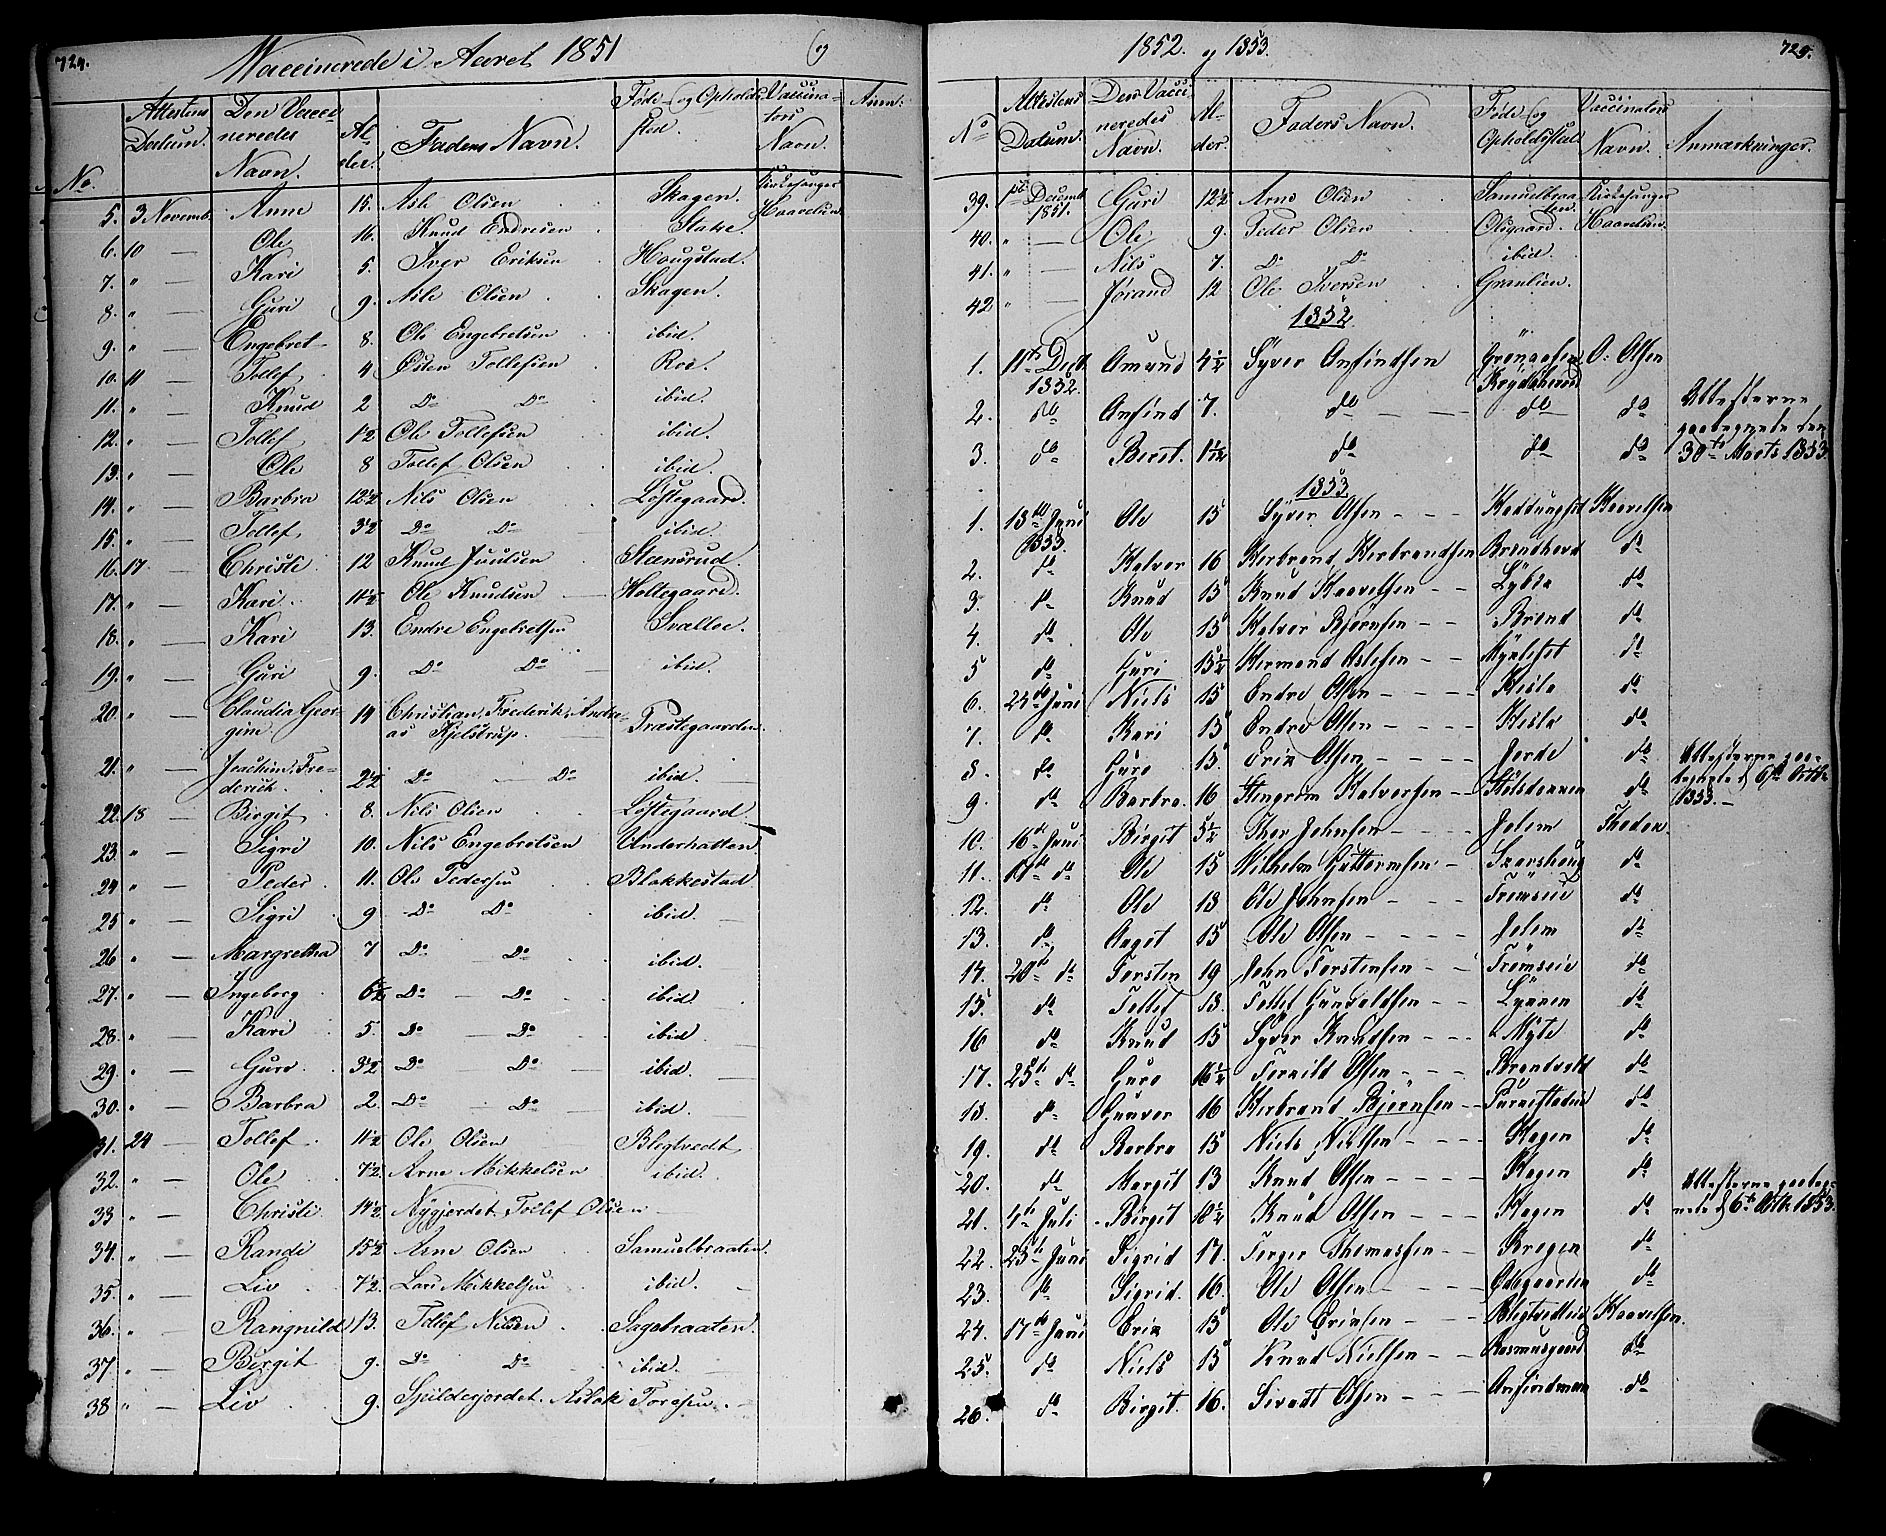 724.
Vaccinerede i Aaret 1851 og
No.
Attestens Datum.
Den Vacci-
neredes
Navn.
Al-
der.
Faders Navn.
Føde- og Opholds-
sted.
Vaccina-
tørs
Navn.
Anm:
5. 3 Novemb. Anne 15. Asle Olsen Skagen. Kirkesanger Haavelsen
6. 10 — Ole 16. Knud Endresen Stake.
7. " — Kari 5. Iver Eriksen Hougstad.
8. " — Guri 9. Asle Olsen Skagen.
9. " — Engebret 8. Ole Engebretsen ibid.
10. 11 Tollef 4 Østen Tollefsen Roe.
11. " — Knud 2 Do Do ibid.
12. " — Tollef 1/2 Ole Tollefsen ibid.
13. " — Ole 8 Tollef Olsen ibid.
14. " — Barbra 12 1/2 Nils Olsen Løstegaard.
15. " — Tollef 3 1/2 Do Do ibid.
16. 17 — Christi 12 Knud Juulsen Stensrud.
17. " — Kari 11 1/2 Ole Knudsen Holtegaard.
18. " — Kari 13. Endre Engebretsen Svalloe.
19. " — Guri 9. Do Do ibid.
20. " — Claudia Geor-
gine. 14 Christian, Frederik, Andre-
as Kjelstrup Præstegaarden.
21. " — Joachim, Fre-
derich. 2 1/2 Do — Do ibid.
22. 18 — Birgit 8. Nils Olsen Løstegaard.
23. " — Sigri 10. Nils Engebretsen Underhatten.
24 " — Peder 11. Ole Pedersen Blakkestad
25 " — Sigri 9 Do Do ibid.
26 " — Margretha 7 Do Do ibid.
27. " — Ingeborg 6 1/2 Do — Do ibid.
28. " — Kari 5. Do — Do ibid.
29. " — Guro 3 1/2 Do — Do ibid.
30. " — Barbra 2. Do — Do ibid.
31. 24 — Tollef 11 1/2 Ole Olsen Bligtvedt
32. " — Ole 7 1/2 Arne Mikkelsen ibid.
33 " — Christi 14 1/2 Nygjordet Tollef Olsen —
34. " — Randi 15 1/2 Arne Olsen Samuelbraaten.
35. " — Liv 7 1/2. Lars Mikkelsen ibid.
36. " — Rangnild 13. Tollef Nilsen Sagebraaten.
37. " — Birgit 9. Do Do ibid.
38. " — Liv 9. Spildegjordet. Aslak Toresen —
1852. og 1853.
725.
No
Attestens
Datum.
Den Vacci-
neredes
Navn.
Al-
der.
Faders Navn.
Føde- og
Opholdssted
Vaccinatørs
Navn.
Anmærkninger.
39. 1ste Decemb 1851. Guri 12 1/2 Arne Olsen Samuelbraa-
ten. Kirkesanger Haavelsen
40. " — Ole 9. Peder Olsen Olsgaard.
41. " — Nils 7. Do Do ibid.
42. " — Jørand 12 Ole Iversen Granlien.
1852
1. 11te Decb. 1852 Amund 4 1/2 Syver Anfindsen
Krydsherred O: Olsen
2. do Anfind 7. do — — do do Attesterne
3. do Beret. 1 1/12 do do do 30te Marts 1853.
1853
1. 13de Juni 1853. Ole 15 Syver Olsen — — — Haavelsen
2. do Halvor 16 Herbrand Herbrandsen do
3. do Knud 15 Knud Haavelsen — — do
4. do Ole 15 Halvor Bjørnsen — — do
5 do Guri 15 1/2 Hermand Aslesen — — do
6. 25de Juni Niels 15 Endre Olsen — — — Hesla do
7. do Kari 15 Endre Olsen — — — Hesla do
8. do Guro 15 Erik Olsen — — — Jorde do
9. do Barbra 16 Stengrim Halvorsen — — do 1853. —
10. 16de Juni Birgit 5 1/2 Thor Johnsen — — — Thoden.
11. 19de do Ole 15 Wilhelm Guttormsen — do
12. do Ole 13 Ole Johnsen — — — do
13. do Aaget 15 Ole Olsen — — — do
14. 20de do Torsten 19 John Torstensen — — do
15. do Tollef 13. Tollef Gunvaldsen — — do
16 do Knud 15 Syver Knudsen — — Myte do
17. 25de do Guro 16 1/2 Ternild Olsen — — do
18. do Gunvor 16 Herbrand Bjørnsen — — do
19. do Barbra 15 Niels Nielsen — — Hagen do
20. do Margit 13 Knud Olsen — — Hagen do
21. 4de Juli Birgit 10 1/2 Knud Olsen — — Hagen do 6te Octb. 1853.
22. 25de Juni Sigrid 17. Torger Thomassen — — do
23. do Sigrid. 16. Ole Olsen — — — do
24. 17de Juni Erik 15 Ole Eriksen — — Haavelsen.
25. do Niels 15 Knud Nielsen — — Rasmusgaard do
26. do Birgit 16. Sivert Olsen — — — do